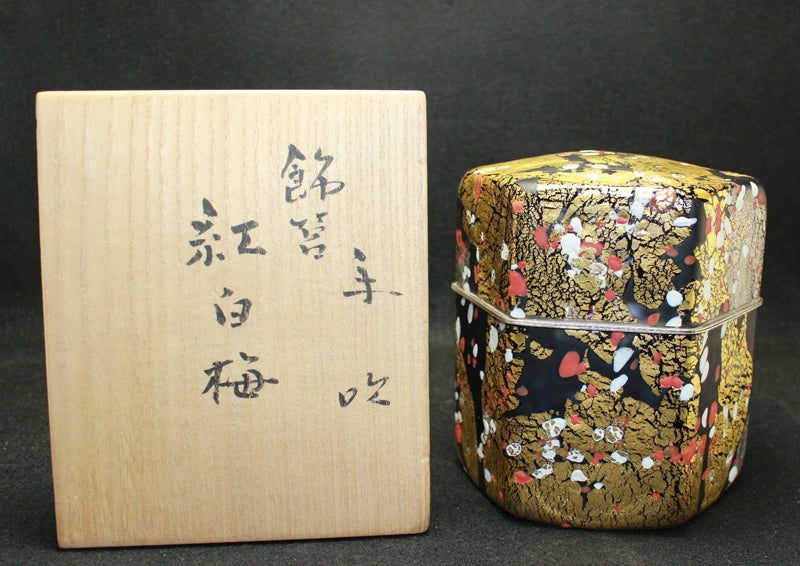 手吹
飾筥
紅白梅